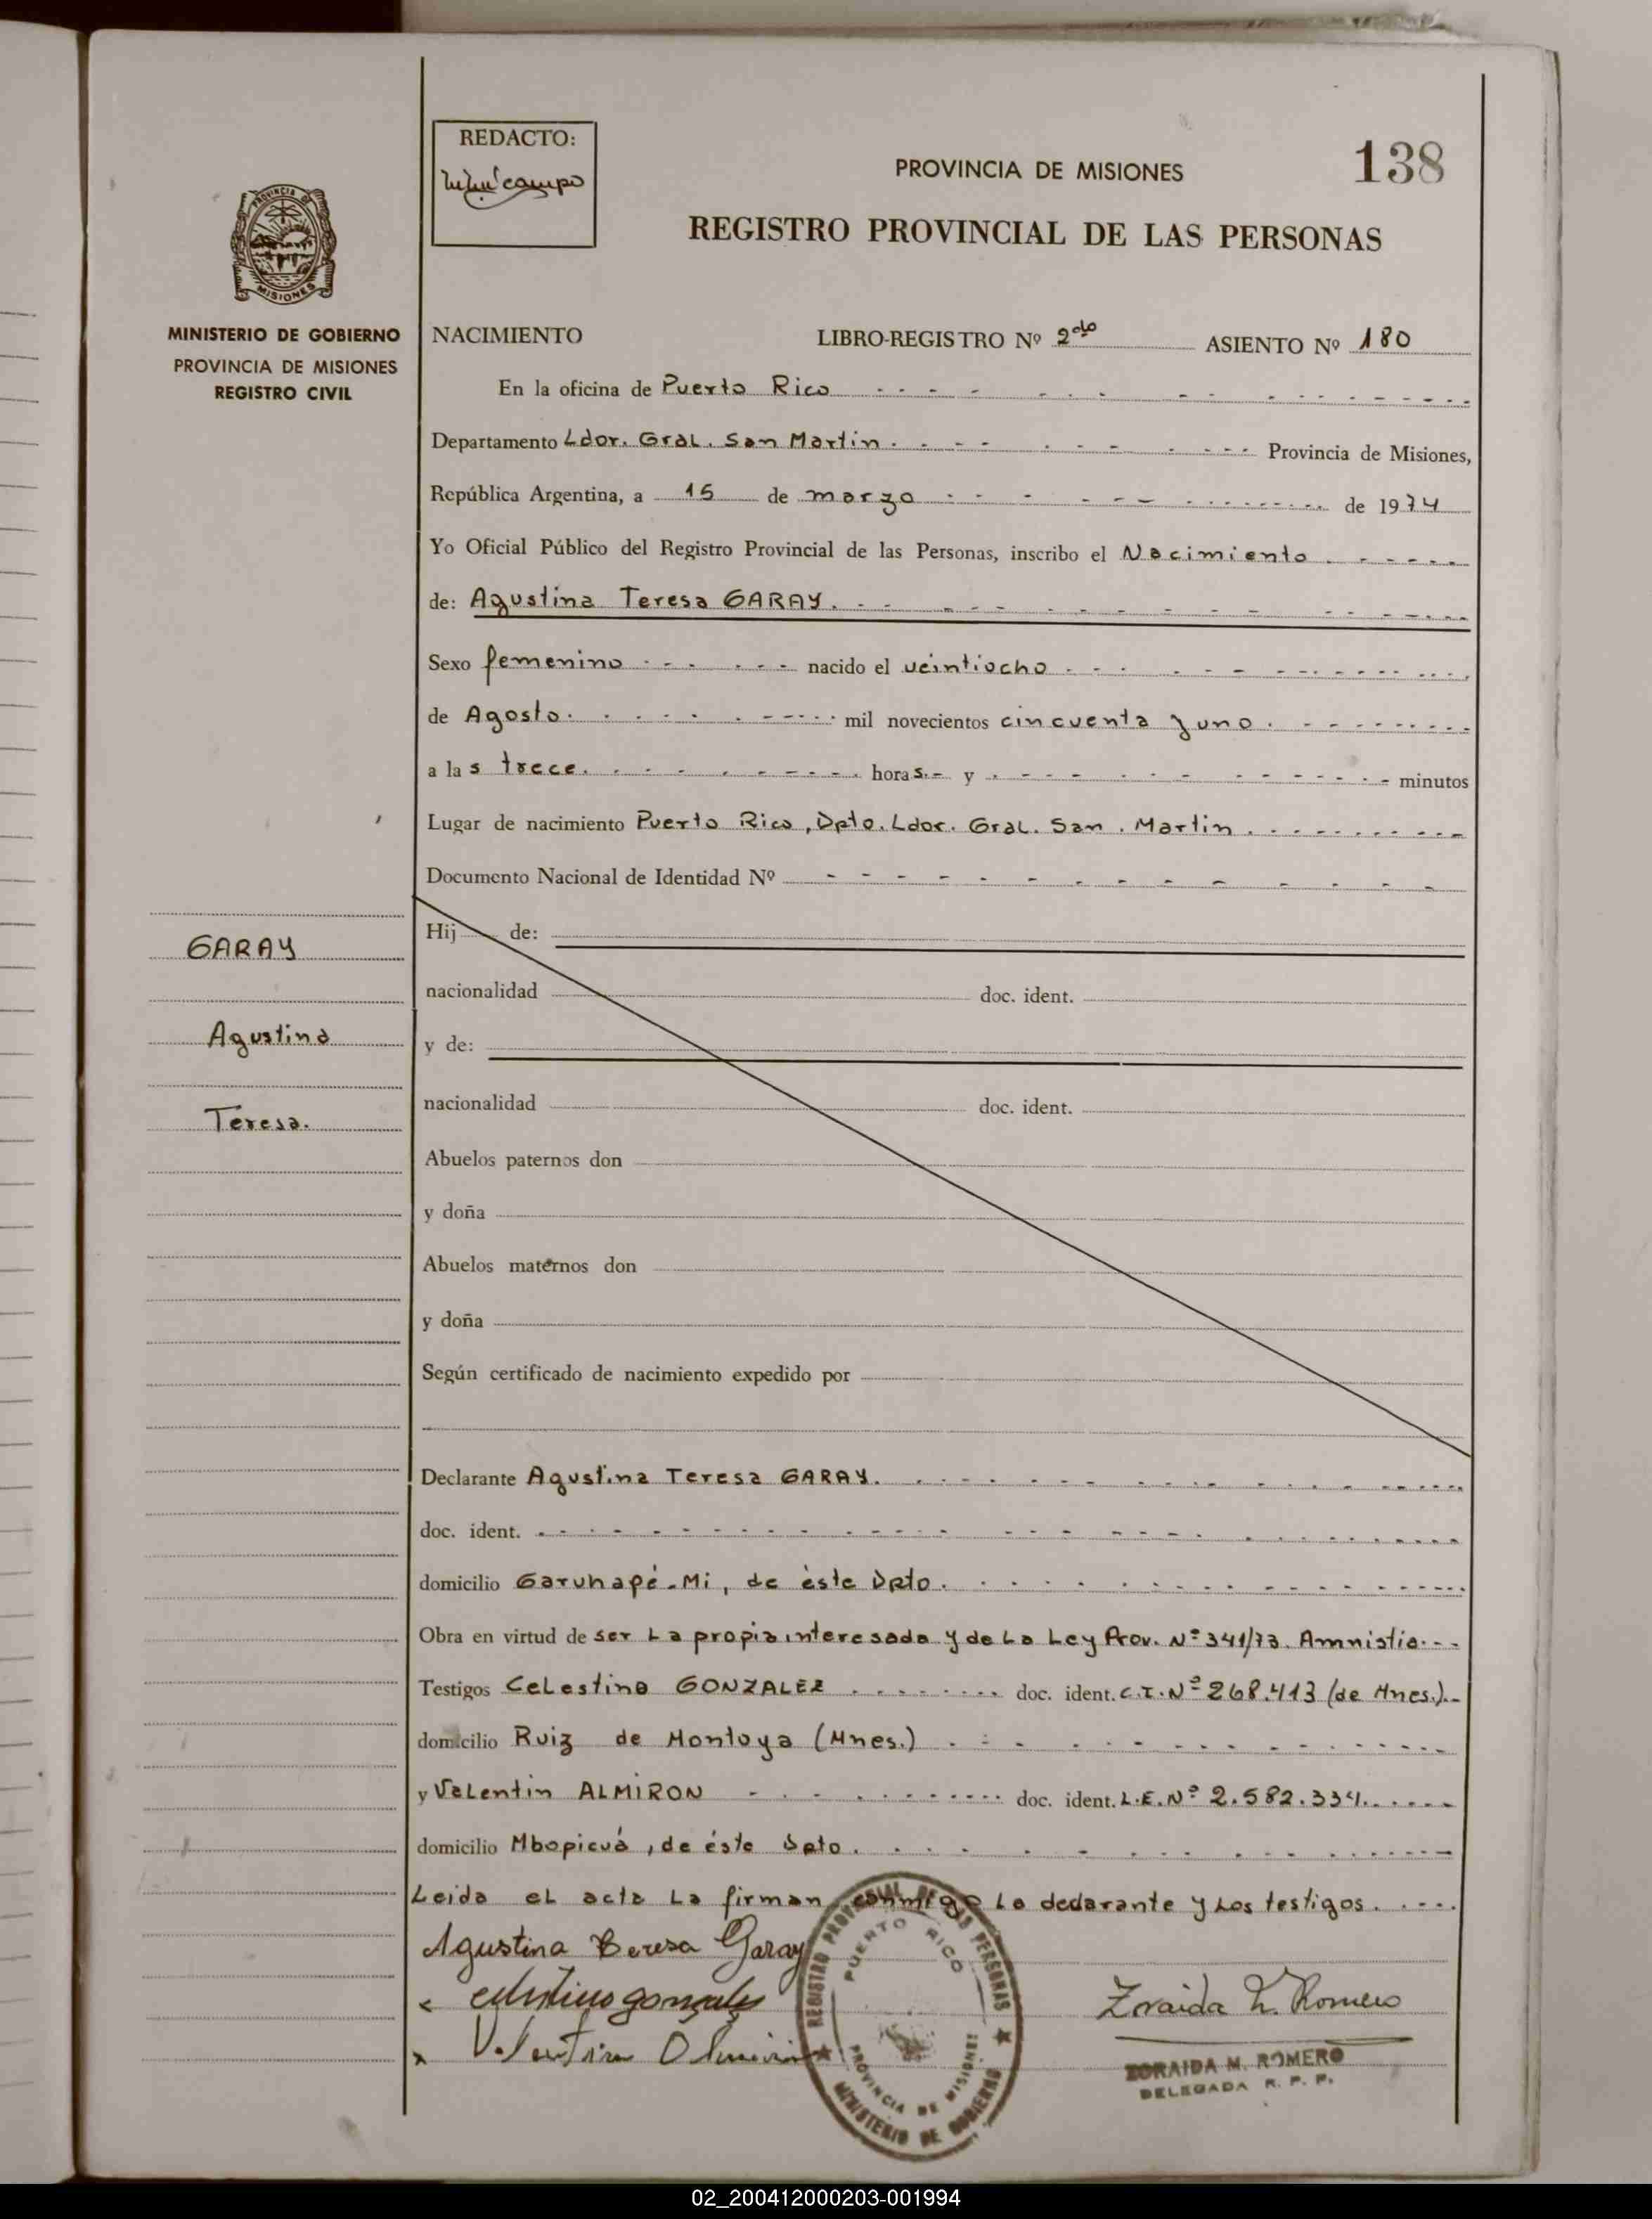 REDACTO:
PROVINCIA DE MISIONES
138
REGISTRO PROVINCIAL DE LAS PERSONAS
PROVINCIA DE
MISIONES
MINISTERIO DE GOBIERNO
PROVINCIA DE MISIONES
REGISTRO CIVIL
NACIMIENTO LIBRO-REGISTRO Nº 2do ASIENTO Nº 180
En la oficina de Puerto Rico
Departamento Ldor. Gral. San Martín. Provincia de Misiones,
República Argentina, a 15 de marzo de 1974
Yo Oficial Público del Registro Provincial de las Personas, inscribo el Nacimiento
de: Agustina Teresa GARAY.
Sexo femenino nacido el veintiocho
de Agosto. mil novecientos cincuenta y uno.
a las trece. horas.- y minutos
Lugar de nacimiento Puerto Rico, Dpto. Ldor. Gral. San. Martín.
Documento Nacional de Identidad Nº
GARAY
Agustina
Teresa.
Hij de:
nacionalidad doc. ident.
y de:
nacionalidad doc. ident.
Abuelos paternos don
y doña
Abuelos maternos don
y doña
Según certificado de nacimiento expedido por
Declarante Agustina Teresa GARAY.
doc. ident.
domicilio Garuhapé-Mi, de éste Dpto.
Obra en virtud de ser La propia interesada y de La Ley Prov. Nº 341/73. Amnistia.
Testigos Celestino GONZALEZ doc. ident. C.I. Nº 268.413 (de Mnes.).-
domicilio Ruiz de Montoya (Mnes.)
y Valentin ALMIRON doc. ident. L.E. Nº 2.582.334.
domicilio Mbopicuá, de éste Dpto.
Leida el acta La firman conmigo La declarante y Los testigos.
Agustina Teresa Garay
celestino gonzalez
Valentin Almiron
REGISTRO PROVINCIAL DE LAS PERSONAS
PUERTO RICO
PROVINCIA DE MISIONES
MINISTERIO DE GOBIERNO
Zoraida M. Romero
ZORAIDA M. ROMERO
DELEGADA R. P. P.
02_200412000203-001994